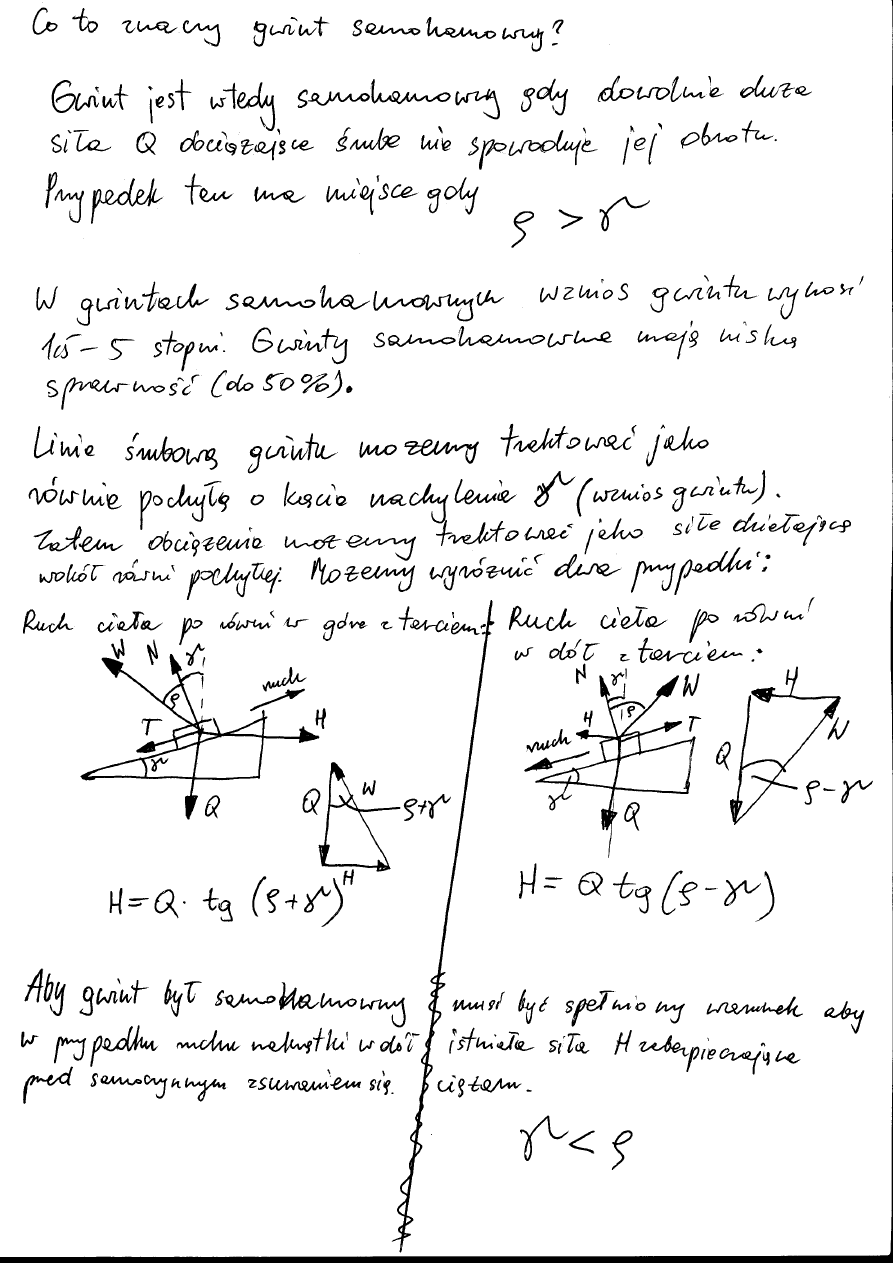 Co to znaczy gwint samohamowny?
Gwint jest wtedy samohamowny gdy dowolnie duża
siła Q obciążająca śrubę nie spowoduje jej obrotu.
Przypadek ten ma miejsce gdy
ρ > γ
W gwintach samohamownych wznios gwintu wynosi
1,5 – 5 stopni. Gwinty samohamowne mają niską
sprawność (do 50%).
Linię śrubową gwintu możemy traktować jako
równię pochyłą o kącie nachylenia γ (wznios gwintu).
Zatem obciążenie możemy traktować jako siłę działającą
wokół równi pochyłej. Możemy wyróżnić dwa przypadki:
Ruch ciała po równi w górę z tarciem:
W N γ
ρ
ruch
T
H
γ
Q
Q W ρ+γ
H
H = Q · tg (ρ+γ)
Ruch ciała po równi
w dół z tarciem:
N γ W
ρ
H
T
ruch
γ
Q
H
Q
W
ρ-γ
H = Q tg (ρ-γ)
Aby gwint był samohamowny musi być spełniony warunek aby
w przypadku ruchu nakrętki w dół istniała siła H zabezpieczająca
przed samoczynnym zsuwaniem się ciężaru.
γ < ρ